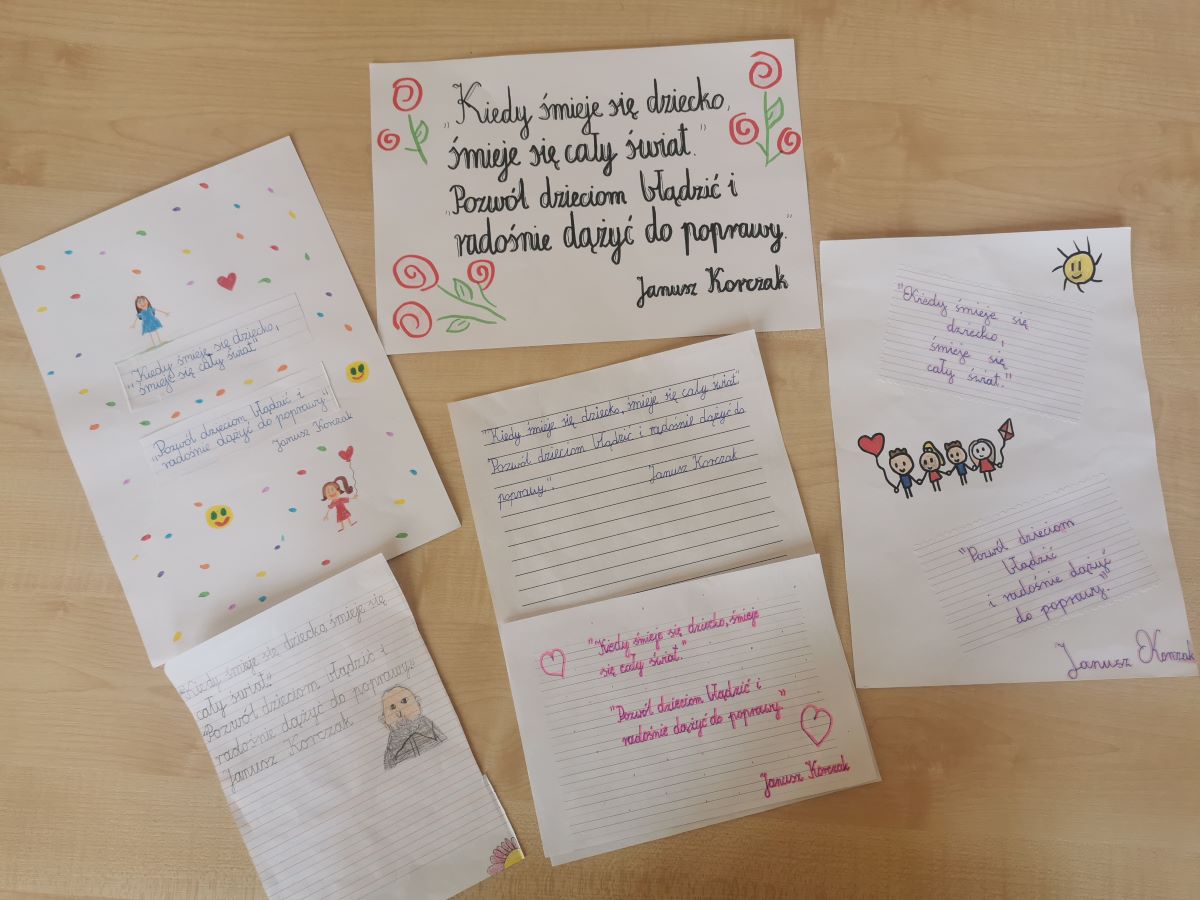 „Kiedy śmieje się dziecko,
śmieje się cały świat."
„Pozwól dzieciom błądzić i
radośnie dążyć do poprawy."
Janusz Korczak
„Kiedy śmieje się dziecko,
śmieje się cały świat"
„Pozwól dzieciom błądzić i
radośnie dążyć do poprawy"
Janusz Korczak
"Kiedy śmieje się dziecko, śmieje się cały świat"
"Pozwól dzieciom błądzić i radośnie dążyć do
poprawy".
Janusz Korczak
"Kiedy śmieje się
dziecko,
śmieje się
cały świat."
"Pozwól dzieciom
błądzić
i radośnie dążyć
do poprawy."
Janusz Korczak
"Kiedy śmieje się dziecko, śmieje się
cały świat."
"Pozwól dzieciom błądzić i
radośnie dążyć do poprawy"
Janusz Korczak
"Kiedy śmieje się dziecko, śmieje
się cały świat."
"Pozwól dzieciom błądzić i
radośnie dążyć do poprawy."
Janusz Korczak